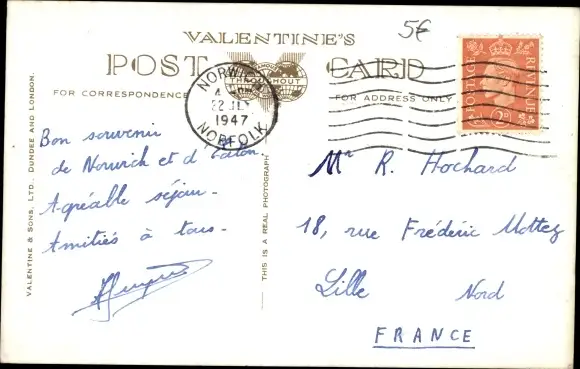 5€
VALENTINE'S
POST CARD
THROUGHOUT
FOR CORRESPONDENCE
FOR ADDRESS ONLY
NORWICH
22 JLY
1947
NORFOLK
POSTAGE REVENUE
2D
Bon souvenir
de Norwich et d'Eaton.
Agréable séjour.
Amitiés à tous.
Mr R. Hochard
18, rue Frédéric Mottez
Lille Nord
FRANCE
VALENTINE & SONS, LTD., DUNDEE AND LONDON.
THIS IS A REAL PHOTOGRAPH